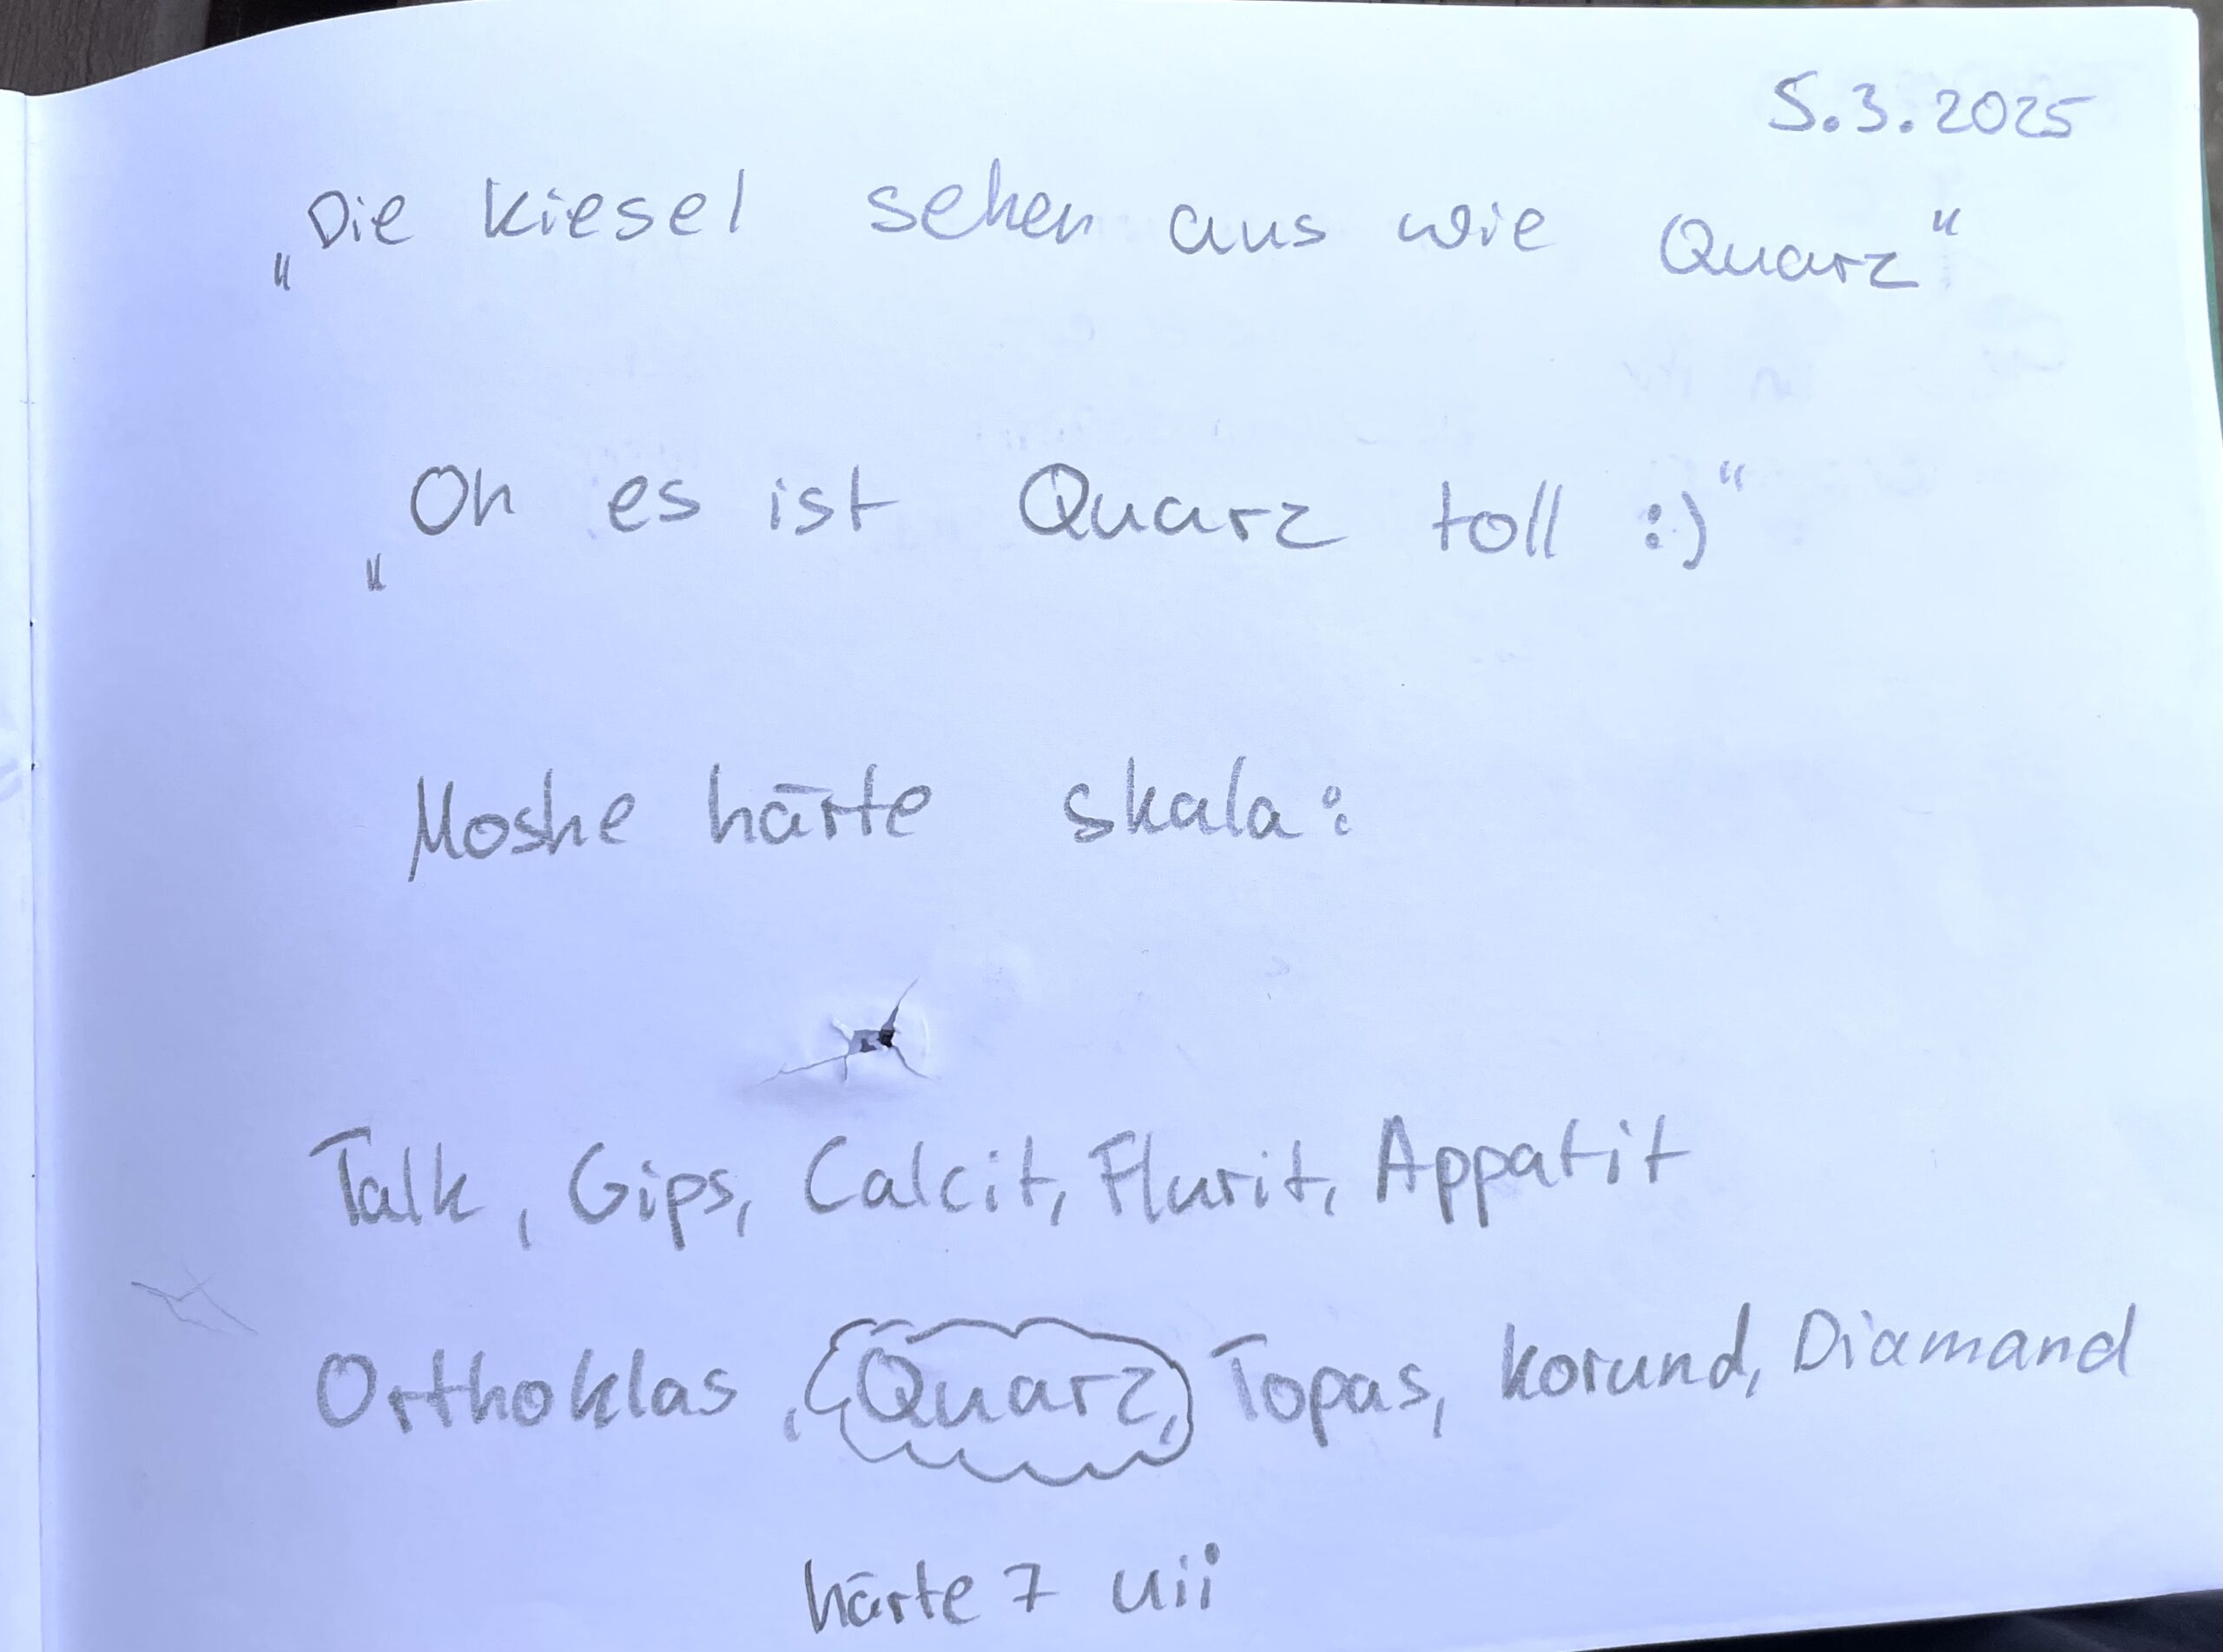 5.3.2025
„Die Kiesel sehen aus wie Quarz“
„Oh es ist Quarz toll :)“
Moshe härte skala:
Talk, Gips, Calcit, Flurit, Appatit
Orthoklas, Quarz, Topas, Korund, Diamand
härte 7 uii